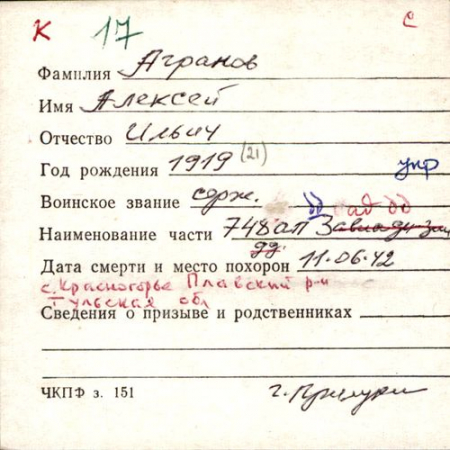 К 17 с
Фамилия Агранов
Имя Алексей
Отчество Ильич
Год рождения 1919 (21)
упр
Воинское звание серж. дд ад дд
Наименование части 748 ап 3
дд.
Дата смерти и место похорон 11.06.42
с. Красногорье Плавский р-н
Тульская обл
Сведения о призыве и родственниках
ЧКПФ з. 151 г.